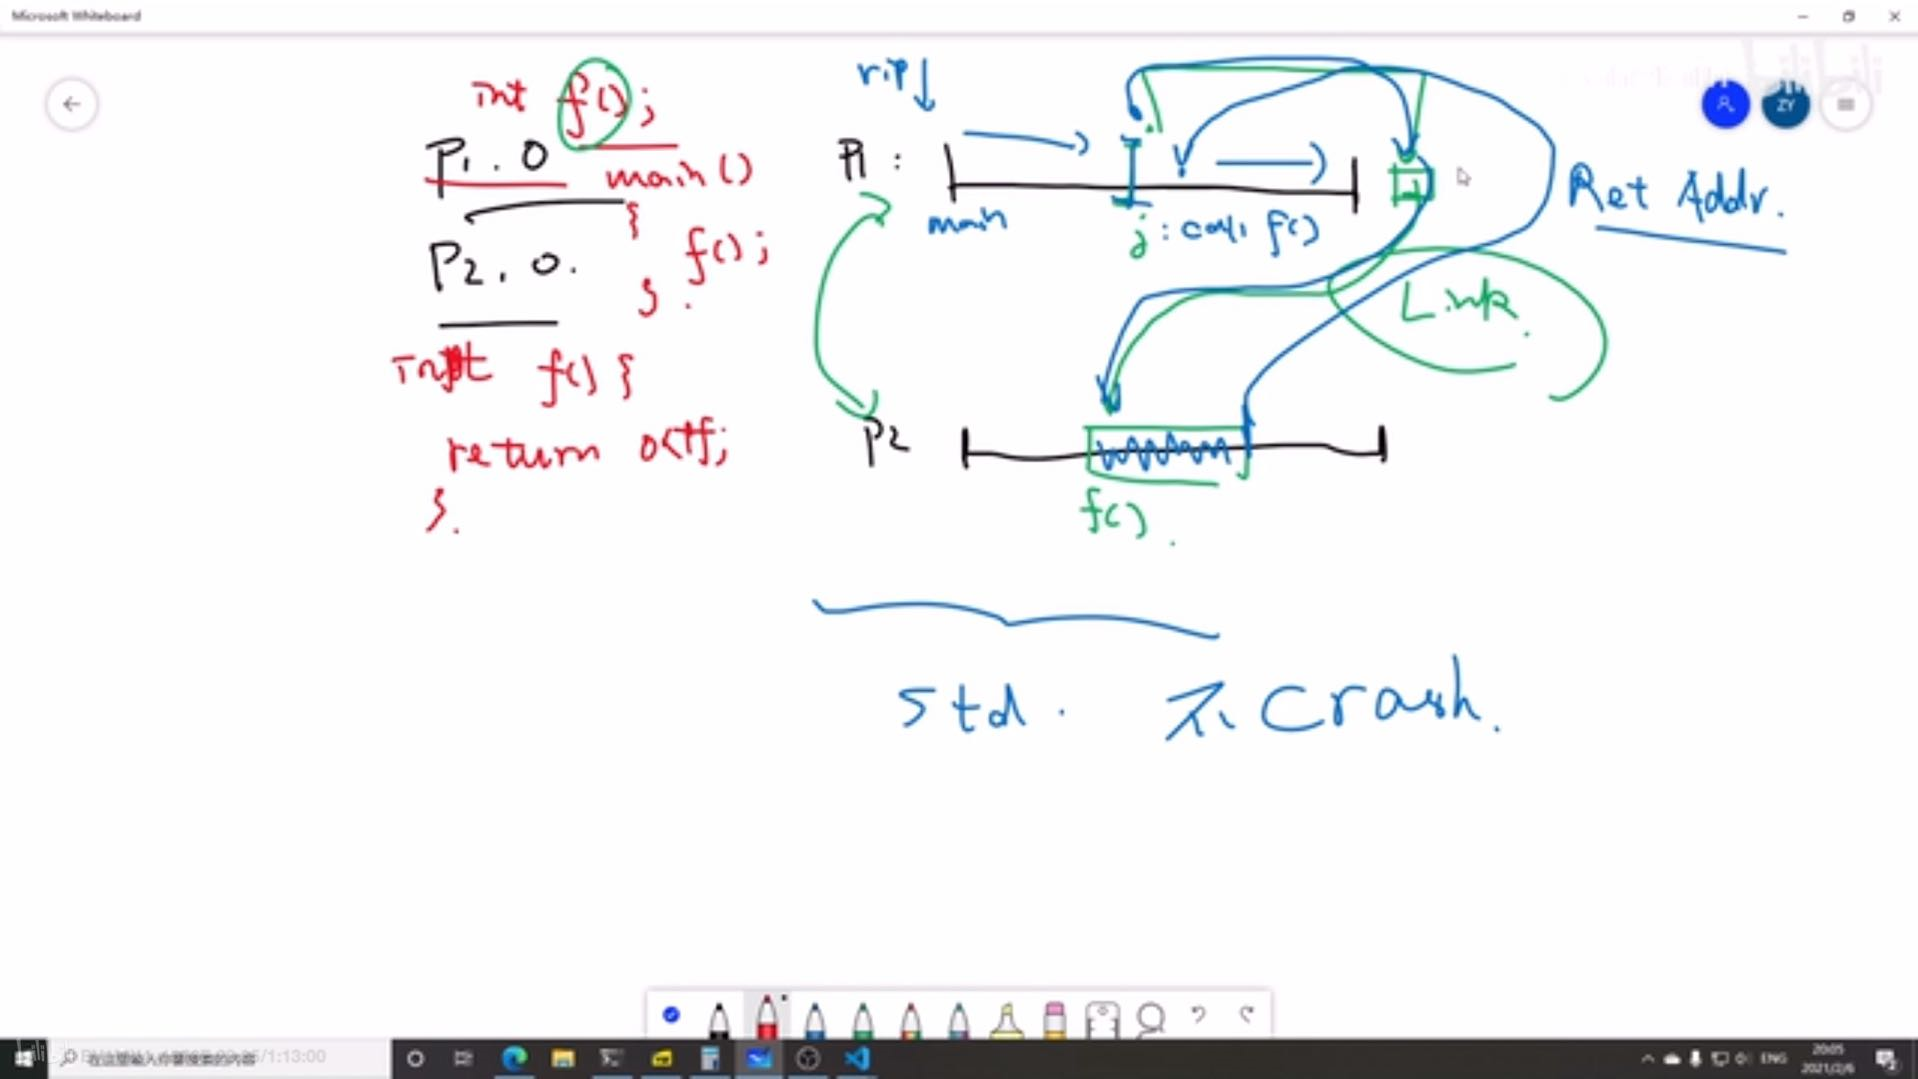 Microsoft Whiteboard
bilibili
ZY
int f();
P1.0
main()
{
f();
}.
P2.0.
int f() {
return 0xff;
}.
rip
P1:
main
j: call f()
Ret Addr.
Link.
P2
f().
std. 不 crash.
在这里输入你要搜索的内容
1:13:00
ENG
20:05
2021/2/6